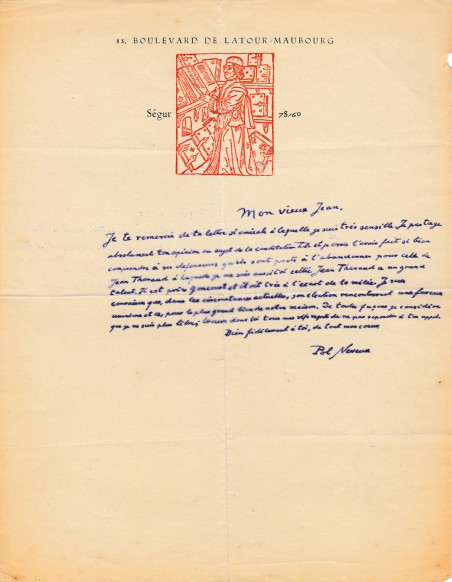 88, BOULEVARD DE LATOUR-MAUBOURG
Ségur 78/60
Mon vieux Jean,
Je te remercie de ta lettre si amicale à laquelle je suis très sensible. Je partage
absolument ton opinion au sujet de la candidature T.D. et je crois t'avoir fait si bien
comprendre à ses défenseurs qu'ils sont prêts à l'abandonner pour celle de
Jean Tharaud à laquelle je me suis aussitôt rallié. Jean Tharaud a un grand
talent. Il est prix Goncourt et il vit très à l'écart de la mêlée. Je suis
convaincu que, dans les circonstances actuelles, son élection rencontrerait une faveur
unanime et ce, pour le plus grand bien de notre maison. De toutes façons je considère
que je ne suis plus libre; trouve donc ici tous mes vifs regrets de ne pas répondre à ton appel.
Bien fidèlement à toi, de tout mon coeur
Pol Neveux